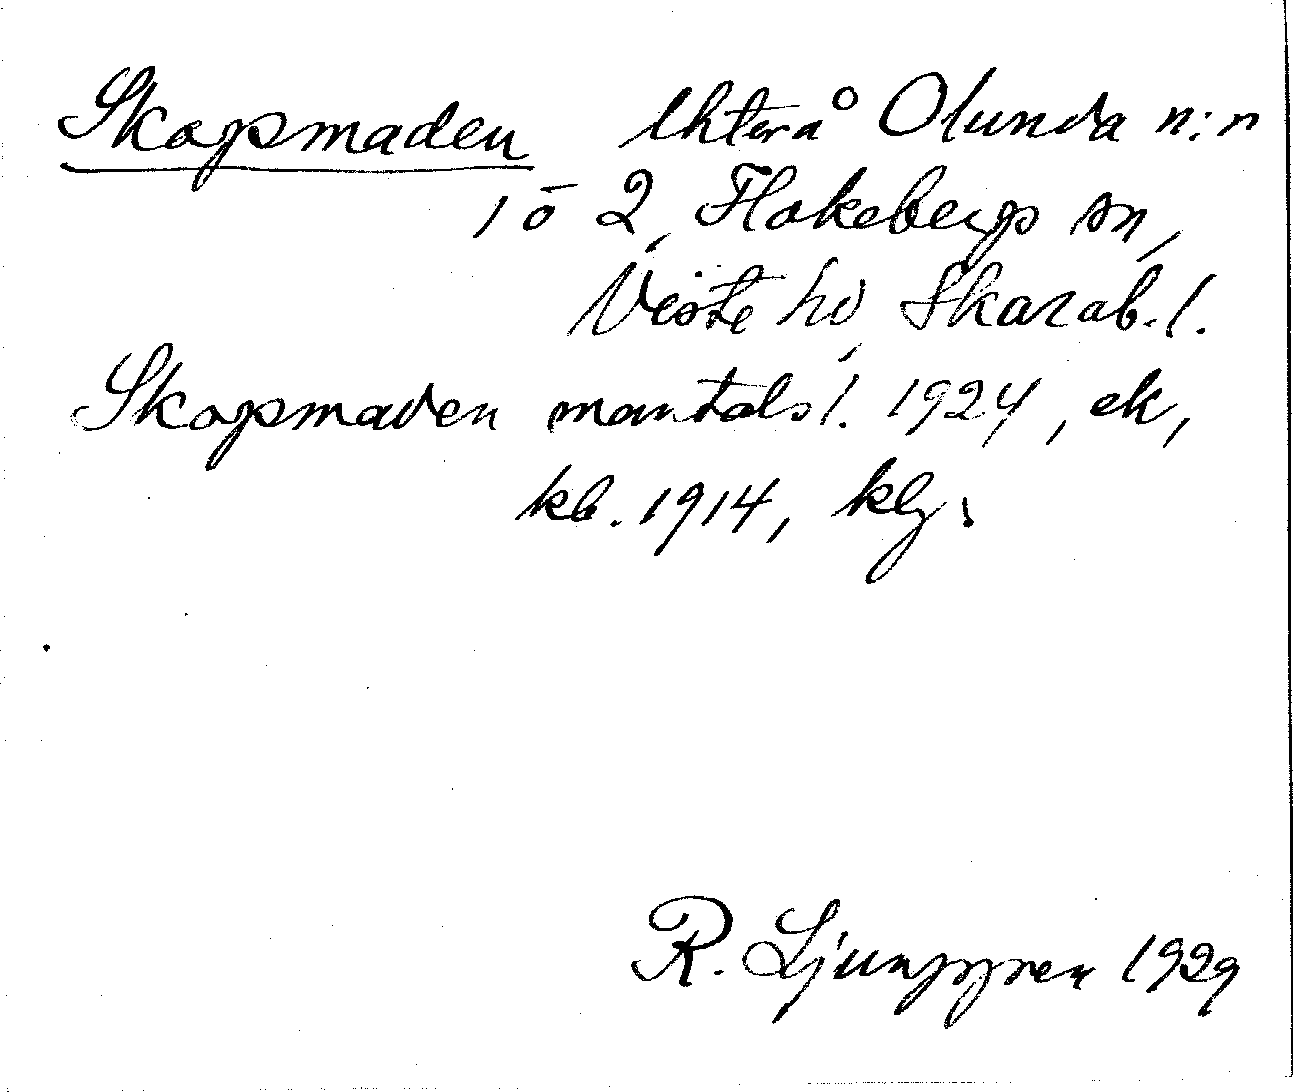 Skogsmaden lht på Olunda n:r
1 o 2, Flakebergs sn,
Viste hd, Skarab. l.
Skogsmaden mantalsl. 1924, ek,
kb. 1914, klg.
R. Ljunggren 1929